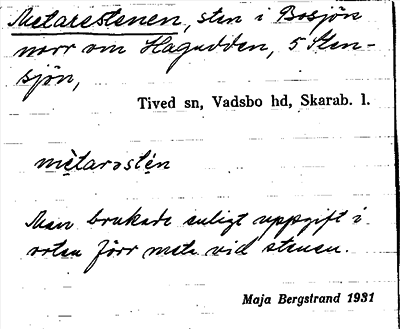 Metarestenen, sten i Bosjön
norr om Hagudden, 5 Sten-
sjön,
Tived sn, Vadsbo hd, Skarab. l.
mètarəstèn
Man brukade enligt uppgift i
rotan förr meta vid stenen.
Maja Bergstrand 1931